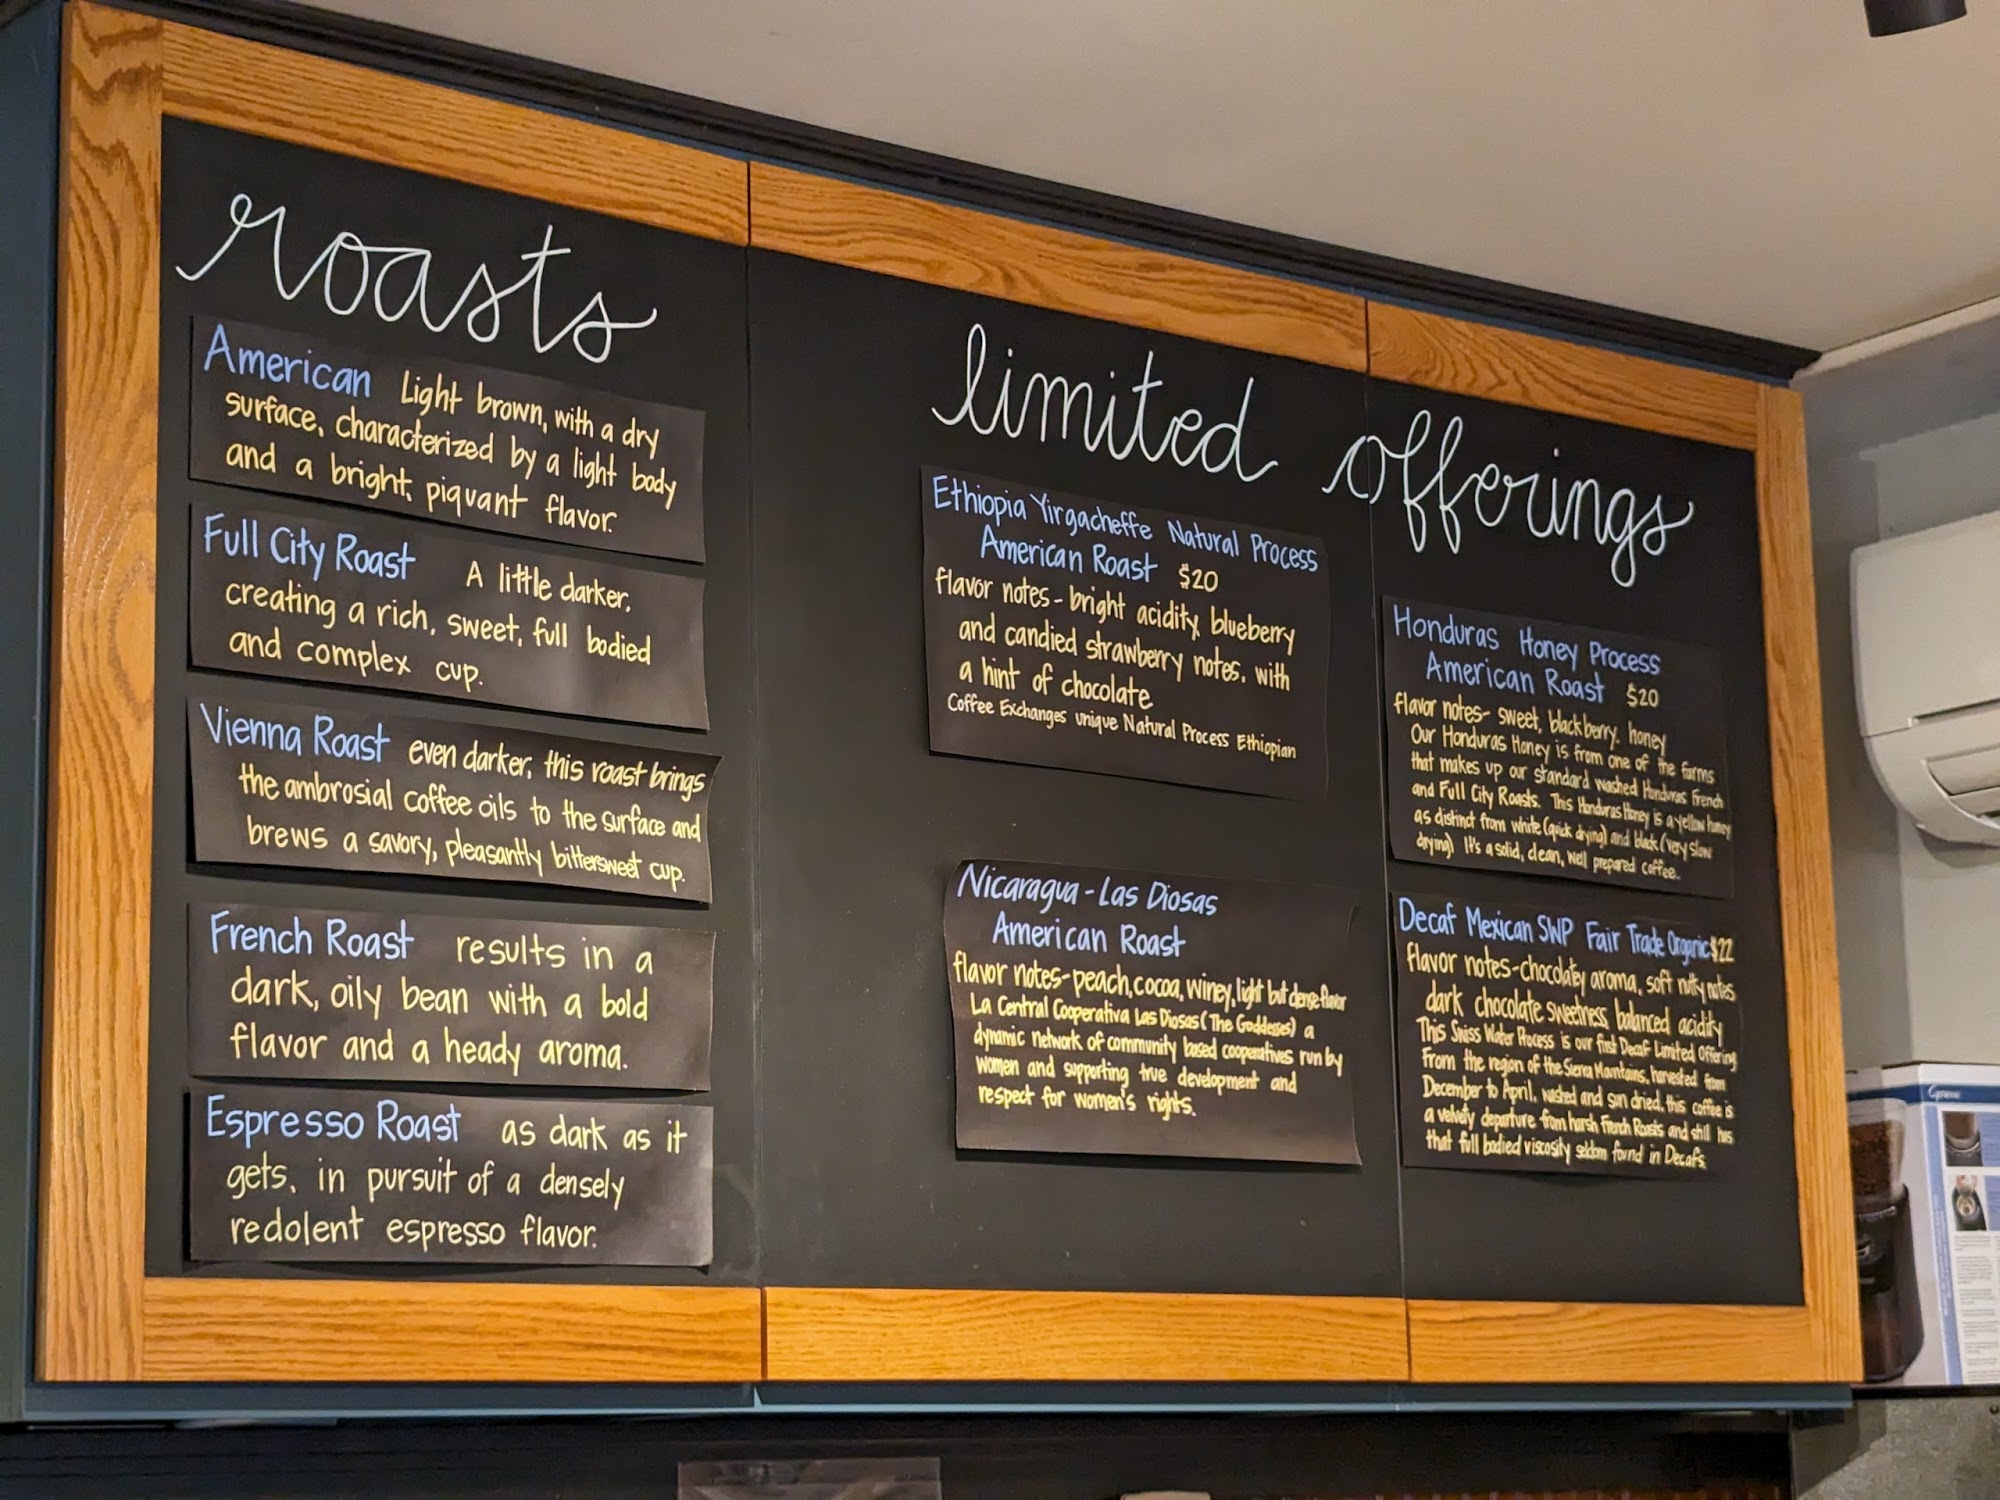 roasts
American Light brown, with a dry
surface, characterized by a light body
and a bright, piquant flavor.
Full City Roast A little darker,
creating a rich, sweet, full bodied
and complex cup.
Vienna Roast even darker, this roast brings
the ambrosial coffee oils to the surface and
brews a savory, pleasantly bittersweet cup.
French Roast results in a
dark, oily bean with a bold
flavor and a heady aroma.
Espresso Roast as dark as it
gets, in pursuit of a densely
redolent espresso flavor.
limited offerings
Ethiopia Yirgacheffe Natural Process
American Roast $20
flavor notes - bright acidity, blueberry
and candied strawberry notes, with
a hint of chocolate
Coffee Exchanges unique Natural Process Ethiopian
Nicaragua - Las Diosas
American Roast
flavor notes - peach, cocoa, winey, light but dense flavor
La Central Cooperativa Las Diosas (The Goddesses) a
dynamic network of community based cooperatives run by
women and supporting true development and
respect for women's rights.
Honduras Honey Process
American Roast $20
flavor notes - sweet, blackberry, honey
Our Honduras Honey is from one of the farms
that makes up our standard washed Honduras French
and Full City Roasts. This Honduras Honey is a yellow honey
as distinct from white (quick drying) and black (very slow
drying) It's a solid, clean, well prepared coffee.
Decaf Mexican SWP Fair Trade Organic $22
flavor notes - chocolatey aroma, soft nutty notes
dark chocolate sweetness, balanced acidity
This Swiss Water Process is our first Decaf Limited Offering
From the region of the Sierra Mountains, harvested from
December to April, washed and sun dried, this coffee is
a velvety departure from harsh French Roasts and still has
that full bodied viscosity seldom found in Decafs.